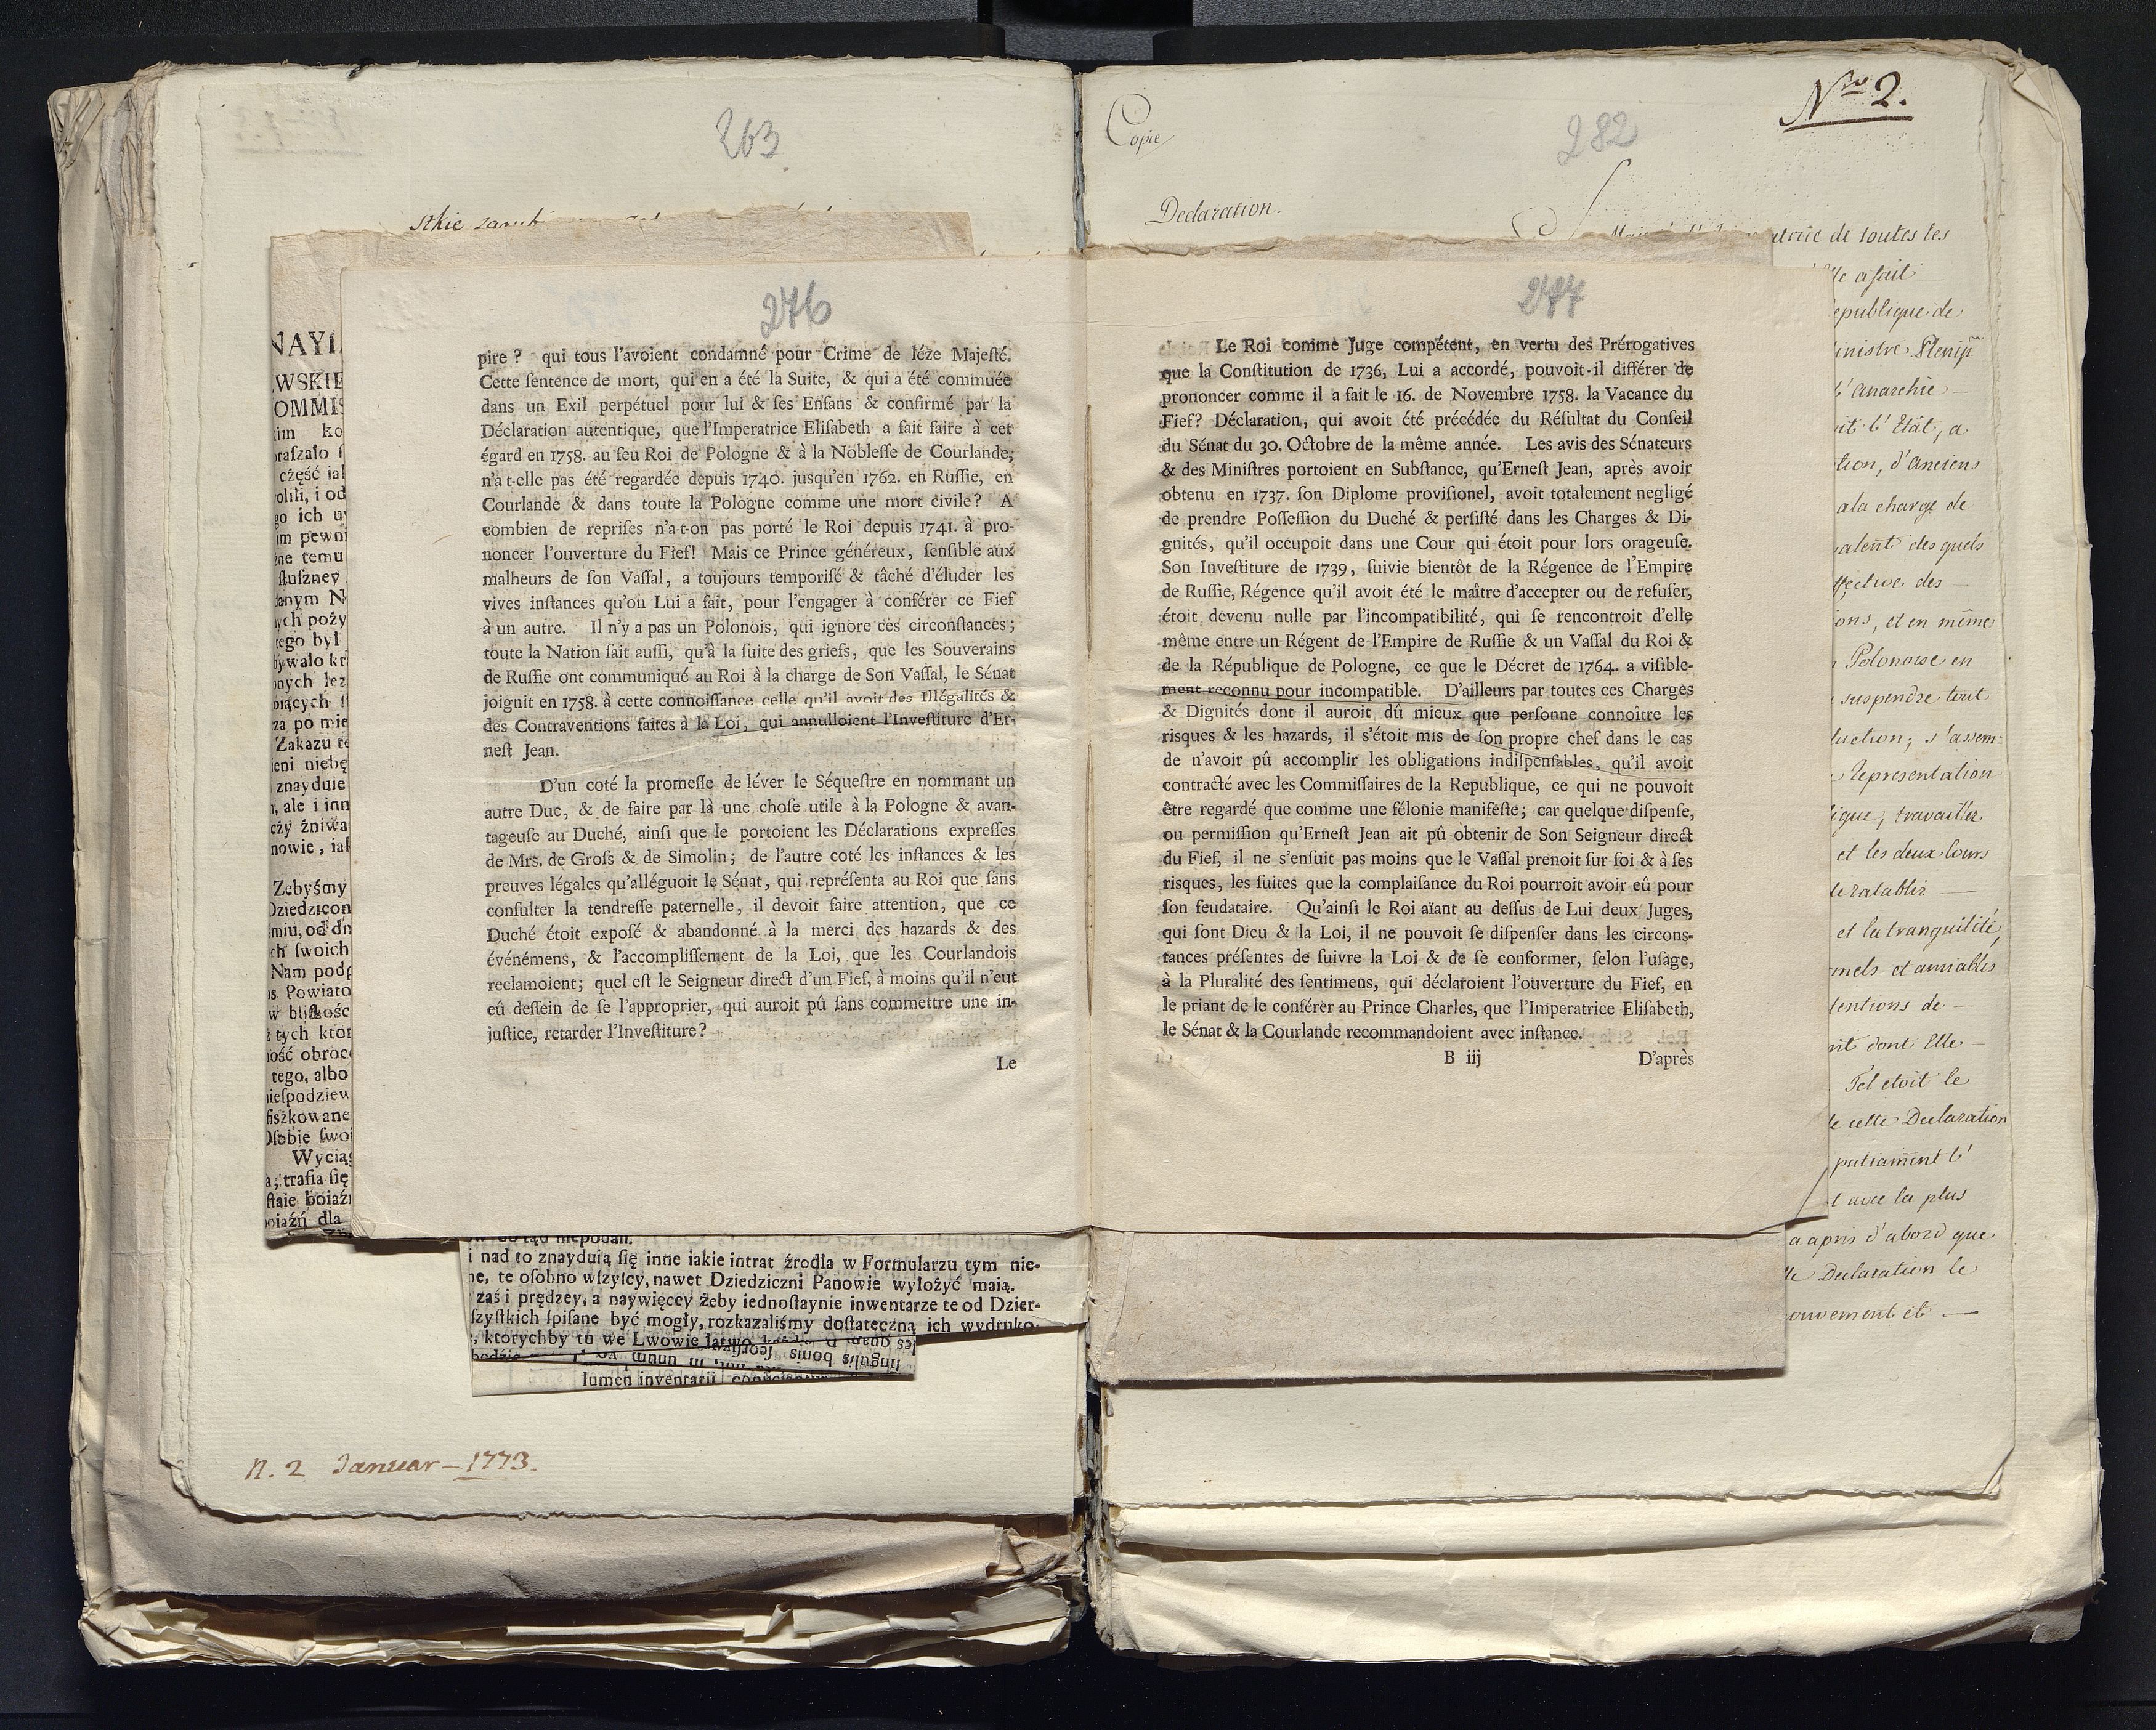 263
stkie
NAYI
WSKIE
OMMIS
kim ko
raſzało ſ
część ial
olili, i od
go ich uy
im pewni
ne temu
ſłuſzney
danym N
ych poży
tego był
bywało kr
onych lez
oiących ſ
za po mie
Zakazu te
ieni niebę
znayduie
, ale i inn
czy żniwa
nowie, iak
Zebyśmy
Dziedzicon
miu, od dn
ch ſwoich
Nam podp
s Powiato
w bliſkośc
z tych ktor
ność obroc
tego, albo
nieſpodziew
fiszkowane
Oſobie ſwoi
Wyciąg
a; trafia ſię
ſtaie boiaźn
boiaźń dla
276
pire ? qui tous l'avoient condamné pour Crime de léze Majeſté.
Cette ſentence de mort, qui en a été la Suite, & qui a été commuée
dans un Exil perpétuel pour lui & ſes Enfans & confirmé par la
Déclaration autentique, que l'Imperatrice Eliſabeth a fait faire à cet
égard en 1758. au feu Roi de Pologne & à la Nobleſſe de Courlande;
n'a t-elle pas été regardée depuis 1740. jusqu'en 1762. en Ruſſie, en
Courlande & dans toute la Pologne comme une mort civile? A
combien de repriſes n'a-t-on pas porté le Roi depuis 1741. à pro-
noncer l'ouverture du Fief! Mais ce Prince généreux, ſenſible aux
malheurs de ſon Vaſſal, a toujours temporiſé & tâché d'éluder les
vives inſtances qu'on Lui a fait, pour l'engager à conférer ce Fief
à un autre. Il n'y a pas un Polonois, qui ignore ces circonſtances;
toute la Nation ſait auſſi, qu'à la ſuite des griefs, que les Souverains
de Ruſſie ont communiqué au Roi à la charge de Son Vaſſal, le Sénat
joignit en 1758. à cette connoiſſance celle qu'il avoit des Illégalités &
des Contraventions faites à la Loi, qui annulloient l'Inveſtiture d'Er-
neſt Jean.
D'un coté la promeſſe de léver le Séqueſtre en nommant un
autre Duc, & de faire par là une choſe utile à la Pologne & avan-
tageuſe au Duché, ainſi que le portoient les Déclarations expreſſes
de Mrs. de Groſs & de Simolin; de l'autre coté les inſtances & les
preuves légales qu'alléguoit le Sénat, qui repréſenta au Roi que ſans
conſulter la tendreſſe paternelle, il devoit faire attention, que ce
Duché étoit expoſé & abandonné à la merci des hazards & des
événémens, & l'accompliſſement de la Loi, que les Courlandois
reclamoient; quel eſt le Seigneur direct d'un Fief, à moins qu'il n'eut
eû deſſein de ſe l'approprier, qui auroit pû ſans commettre une in-
juſtice, retarder l'Inveſtiture?
Le
i nad to znayduią ſię inne iakie intrat źrodła w Formularzu tym nie-
ne, te oſobno wſzyſcy, nawet Dziedziczni Panowie wyłożyć maią.
zaś i prędzey, a naywięcey żeby iednoſtaynie inwentarze te od Dzier-
ſzyſtkich ſpiſane być mogły, rozkazaliśmy doſtateczną ich wydruko-
, ktorychby tu we Lwowie łatwo
ſingulis bonis ſeorſim
lumen inventarii
n. 2 Januar – 1773.
Nro 2.
Copie
282
Declaration.
atrice de toutes les
Elle a fait
epublique de
inistre Plenip
l'anarchie
it l'Etât, a
tion, d'anciens
a la charge de
alent des quels
ffective des
ons, et en même
Polonoise en
suspendre tout
uction; s'assem=
Représentation
ique; travailler
et les deux Cours
de rétablir
et la tranquilité,
mels et amiables
tentions de
nt dont Elle
Tel etoit le
de cette Declaration
patiament l'
t avec la plus
a apris d'abord que
lle Declaration le
ouvement et
277
Le Roi comme Juge compétent, en vertu des Prérogatives
que la Conſtitution de 1736, Lui a accordé, pouvoit-il différer de
prononcer comme il a fait le 16. de Novembre 1758. la Vacance du
Fief? Déclaration, qui avoit été précédée du Réſultat du Conſeil
du Sénat du 30. Octobre de la même année. Les avis des Sénateurs
& des Miniſtres portoient en Subſtance, qu'Erneſt Jean, après avoir
obtenu en 1737. ſon Diplome proviſionel, avoit totalement negligé
de prendre Poſſeſſion du Duché & perſiſté dans les Charges & Di-
gnités, qu'il occupoit dans une Cour qui étoit pour lors orageuſe.
Son Inveſtiture de 1739, ſuivie bientôt de la Régence de l'Empire
de Ruſſie, Régence qu'il avoit été le maître d'accepter ou de refuſer,
étoit devenu nulle par l'incompatibilité, qui ſe rencontroit d'elle
même entre un Régent de l'Empire de Ruſſie & un Vaſſal du Roi &
de la République de Pologne, ce que le Décret de 1764. a viſible-
ment reconnu pour incompatible. D'ailleurs par toutes ces Charges
& Dignités dont il auroit dû mieux que perſonne connoître les
risques & les hazards, il s'étoit mis de ſon propre chef dans le cas
de n'avoir pû accomplir les obligations indiſpenſables, qu'il avoit
contracté avec les Commiſſaires de la Republique, ce qui ne pouvoit
être regardé que comme une félonie manifeſte; car quelque diſpenſe,
ou permiſſion qu'Erneſt Jean ait pû obtenir de Son Seigneur direct
du Fief, il ne s'enſuit pas moins que le Vaſſal prenoit ſur ſoi & à ſes
risques, les ſuites que la complaiſance du Roi pourroit avoir eû pour
ſon feudataire. Qu'ainſi le Roi aïant au deſſus de Lui deux Juges,
qui ſont Dieu & la Loi, il ne pouvoit ſe diſpenſer dans les circons-
tances préſentes de ſuivre la Loi & de ſe conformer, ſelon l'uſage,
à la Pluralité des ſentimens, qui déclaroient l'ouverture du Fief, en
le priant de le conférer au Prince Charles, que l'Imperatrice Eliſabeth,
le Sénat & la Courlande recommandoient avec inſtance.
B iij
D'après